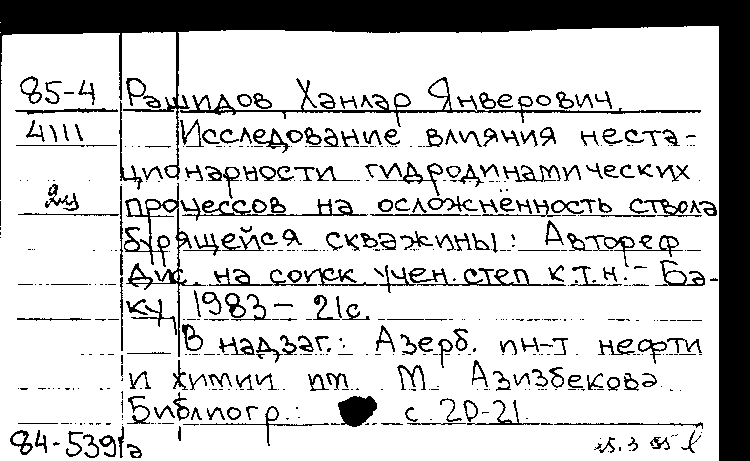 85-4 Рашидов, Ханлар Янверович.
4111 Исследование влияния неста-
ционарности гидродинамических
2и процессов на осложнённость ствола
бурящейся скважины: Автореф
дис. на соиск. учен. степ к.т.н. - Ба-
ку, 1983 - 21с.
В надзаг.: Азерб. ин-т нефти
и химии им. М. Азизбекова
Библиогр.: с. 20-21
84-5391а
25.3 85